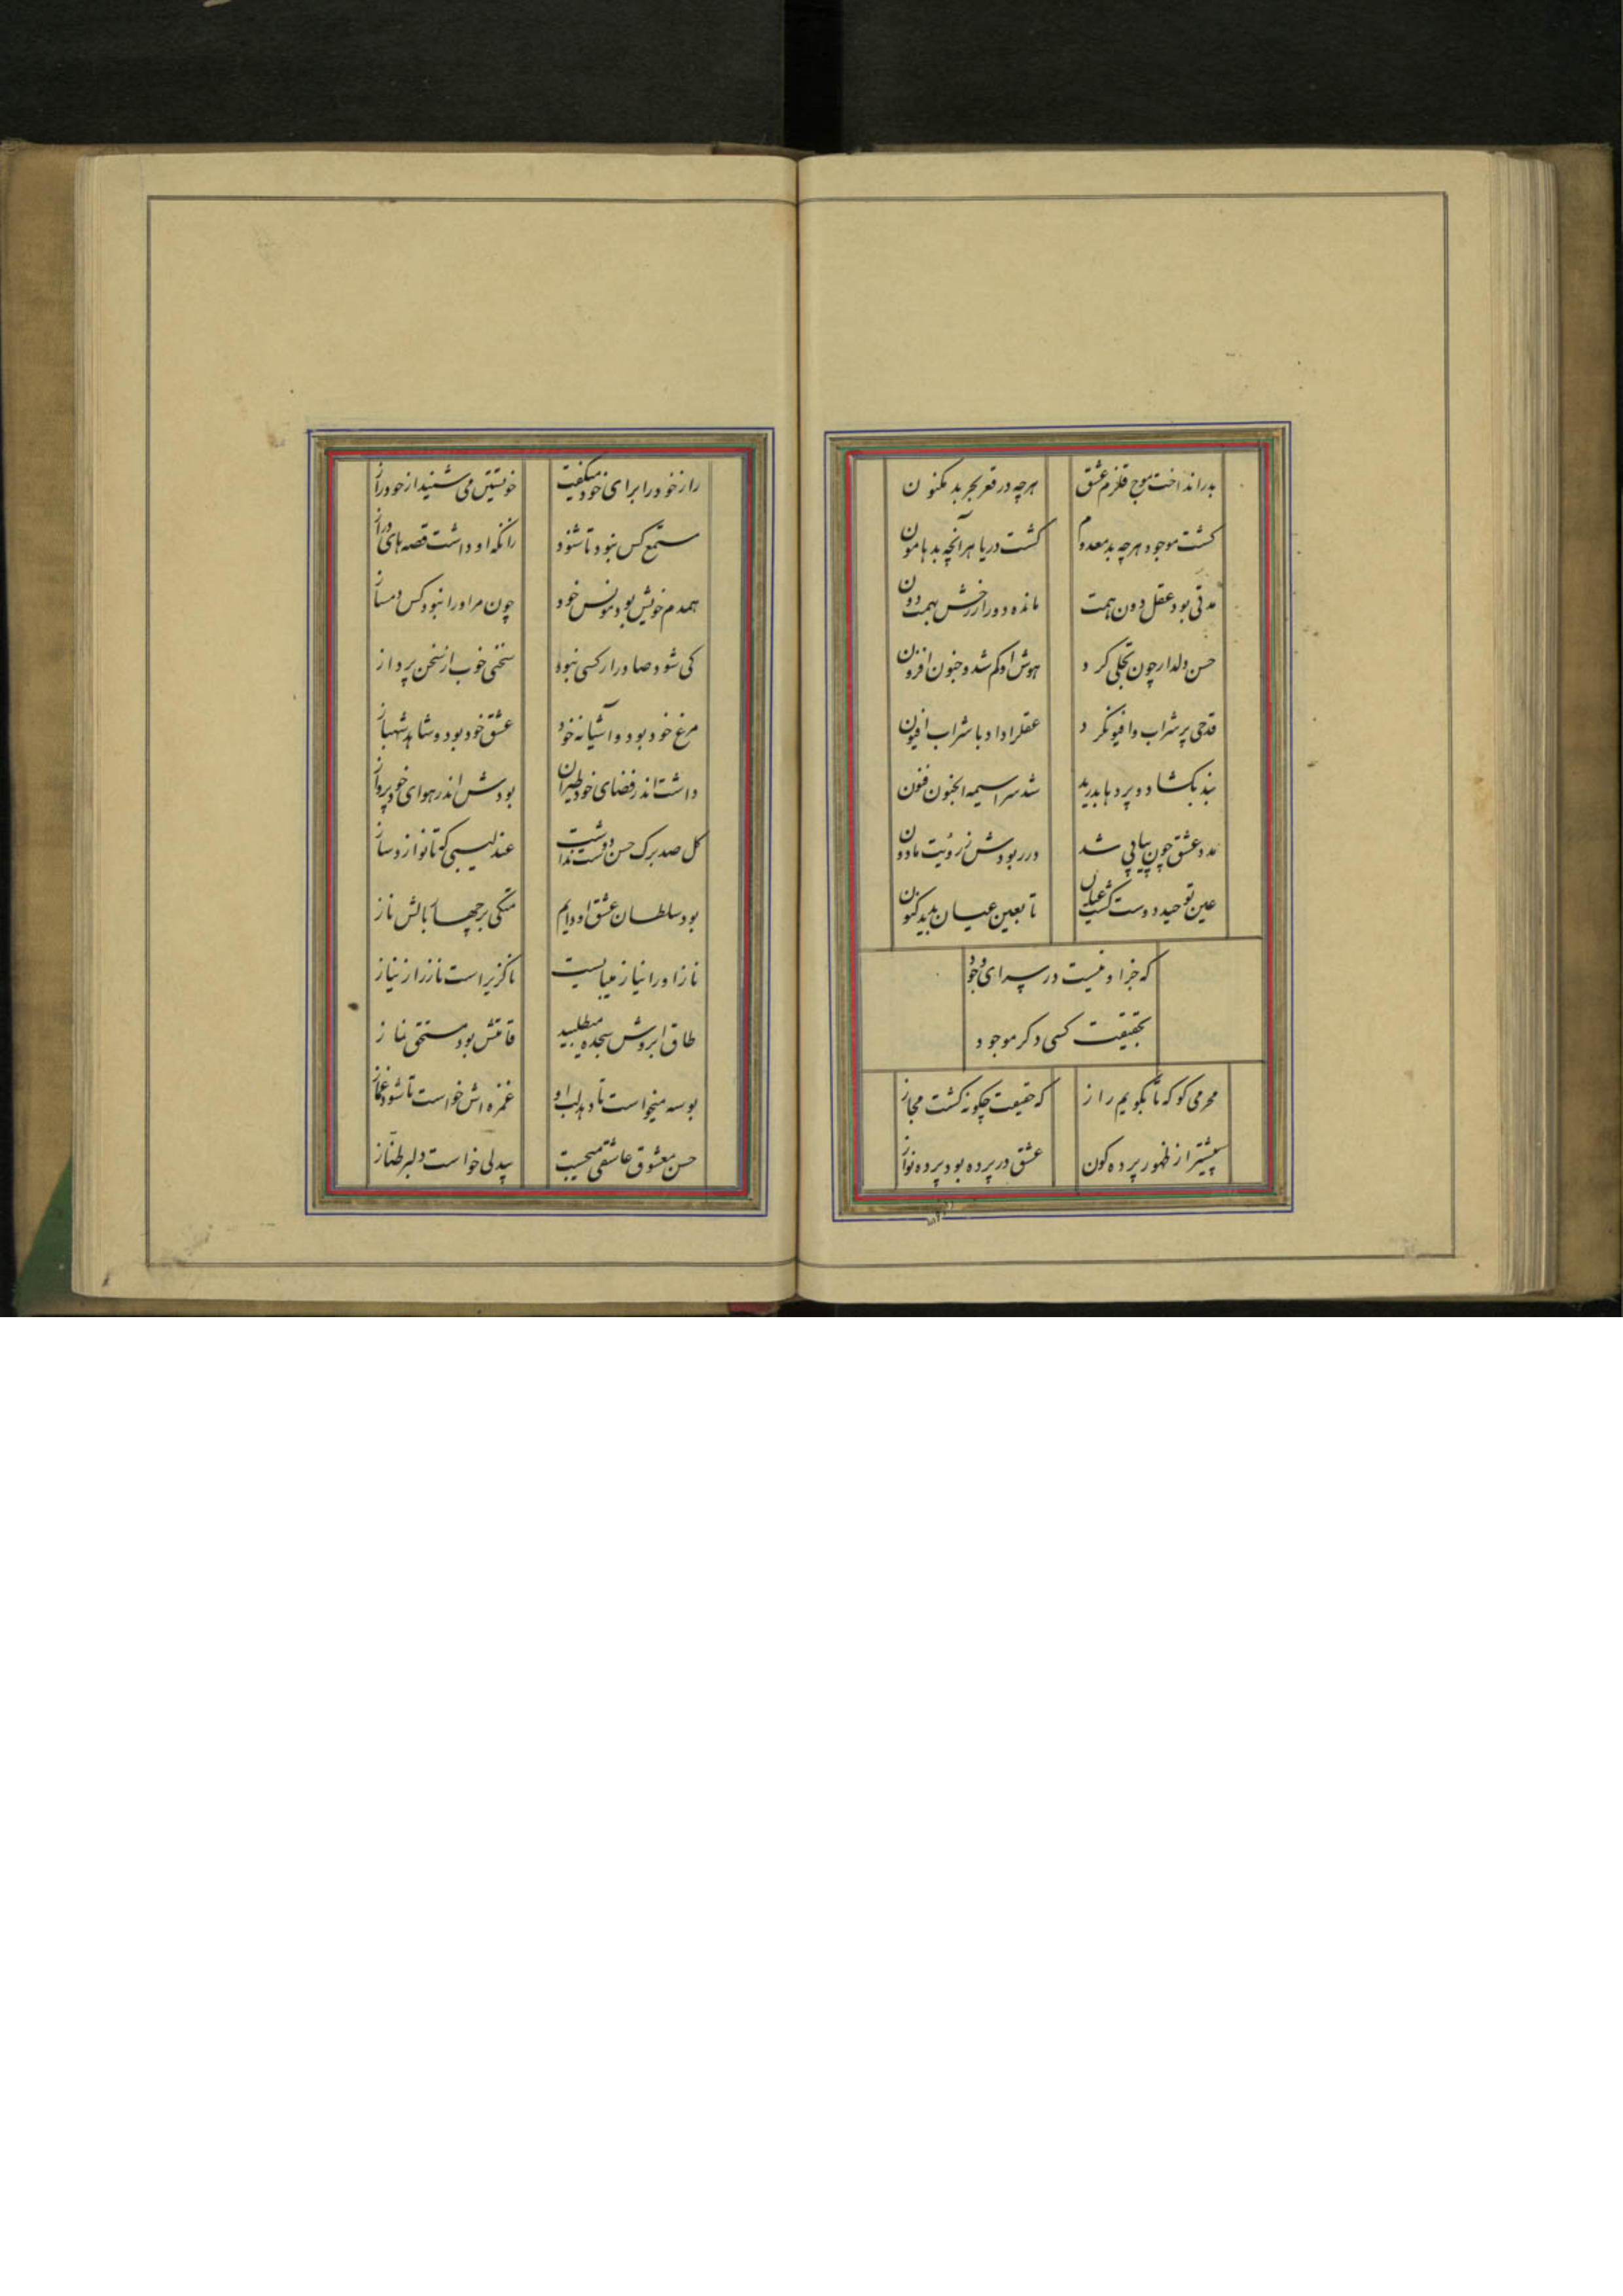 بدر انداخت موج قلزم عشق هرچه در قعر بحر بد مکنون
کشت موجود هرچه بد معدوم کشت دریا هر آنچه بد هامون
مدتی بود عقل دون همت مانده دور از رخش بهمت دون
حسن دلدار چون تجلی کرد هوش او کم شد و جنون افزون
قدحی پر شراب وافیونکرد عقلرا داد با شراب افیون
بند بکشاد و پردها بدرید شد سراسیمه الجنون فنون
مدد عشق چون پیاپی شد در ربودش ز رؤیت مادون
عین توحید دوست کشت عیان تا بعین عیان بدید کنون
که جز او نیست در سرای وجود
بحقیقت کسی دکر موجود
محرمی کو که تا بکویم راز که حقیقت چکونه کشت مجاز
پیشتر از ظهور پرده کون عشق در پرده بود پرده نواز
راز خود را برای خود میکفت خویشتن می شنید از خود راز
مستمع کس نبود تا شنود زانکه او داشت قصه های دراز
همدم خویش بود و مونس خود چون مر او را نبود کس دمساز
کی شود صادر ار کسی نبود سخنی خوب از سخن پرداز
مرغ خود بود و آشیانه خود عشق خود بود و شاهد شهباز
داشت اندر فضای خود طیران بودش اندر هوای خود پرواز
کل صد برک حسن دوست نداشت عندلیبی که تا نوازد ساز
بود سلطان عشق او دایم متکی بر چهار بالش ناز
ناز او را نیاز میبایست ناکزیر است ناز را ز نیاز
طاق ابروش سجده میطلبید قامتش بود مستحق نماز
بوسه میخواست تا دهد لب او غمزه اش خواست تا شود غماز
حسن معشوق عاشقی میجست بیدلی خواست دلبر طناز